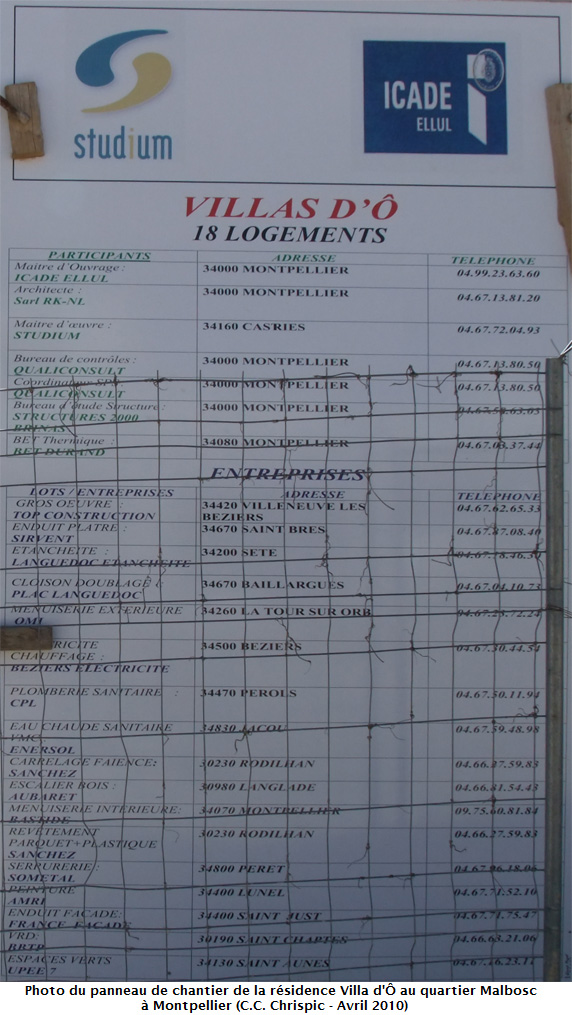 studium
ICADE
ELLUL
VILLAS D'Ô
18 LOGEMENTS
PARTICIPANTS ADRESSE TELEPHONE
Maitre d'Ouvrage : 34000 MONTPELLIER 04.99.23.63.60
ICADE ELLUL
Architecte : 34000 MONTPELLIER 04.67.13.81.20
Sarl RK-NL
Maitre d'œuvre : 34160 CASTRIES 04.67.72.04.93
STUDIUM
Bureau de contrôles : 34000 MONTPELLIER 04.67.13.80.50
QUALICONSULT
Coordinateur SPS 34000 MONTPELLIER 04.67.13.80.50
QUALICONSULT
Bureau d'étude Structure : 34000 MONTPELLIER
STRUCTURES 2000
BRINAS
BET Thermique : 34080 MONTPELLIER 04.67.03.37.44
BET DURAND
ENTREPRISES
LOTS / ENTREPRISES ADRESSE TELEPHONE
GROS OEUVRE : 34420 VILLENEUVE LES 04.67.62.65.33
TOP CONSTRUCTION BEZIERS
ENDUIT PLATRE : 34670 SAINT BRES 04.67.87.08.40
SIRVENT
ETANCHEITE : 34200 SETE 04.67.78.46.50
LANGUEDOC ETANCHEITE
CLOISON DOUBLAGE : 34670 BAILLARGUES 04.67.04.10.73
PLAC LANGUEDOC
MENUISERIE EXTERIEURE 34260 LA TOUR SUR ORB 04.67.23.72.24
OMI
34500 BEZIERS 04.67.30.44.54
CHAUFFAGE :
BEZIERS ELECTRICITE
PLOMBERIE SANITAIRE : 34470 PEROLS 04.67.50.11.94
CPL
EAU CHAUDE SANITAIRE 34830 JACOU 04.67.59.48.98
VMC
ENERSOL
CARRELAGE FAIENCE: 30230 RODILHAN 04.66.27.59.83
SANCHEZ
ESCALIER BOIS : 30980 LANGLADE 04.66.81.54.43
AUBARET
MENUISERIE INTERIEURE: 34070 MONTPELLIER 09.75.60.81.84
BASTIDE
REVÊTEMENT 30230 RODILHAN 04.66.27.59.83
PARQUET+PLASTIQUE
SANCHEZ
SERRURERIE : 34800 PERET 04.67.96.18.06
SOMETAL
PEINTURE 34400 LUNEL 04.67.71.52.10
AMRI
ENDUIT FACADE: 34400 SAINT JUST 04.67.71.75.47
FRANCE FACADE
VRD: 30190 SAINT CHAPTES 04.66.63.21.06
BRTP
ESPACES VERTS 34130 SAINT AUNES 04.67.16.23.11
UPEE 7
Photo du panneau de chantier de la résidence Villa d'Ô au quartier Malbosc
à Montpellier (C.C. Chrispic - Avril 2010)